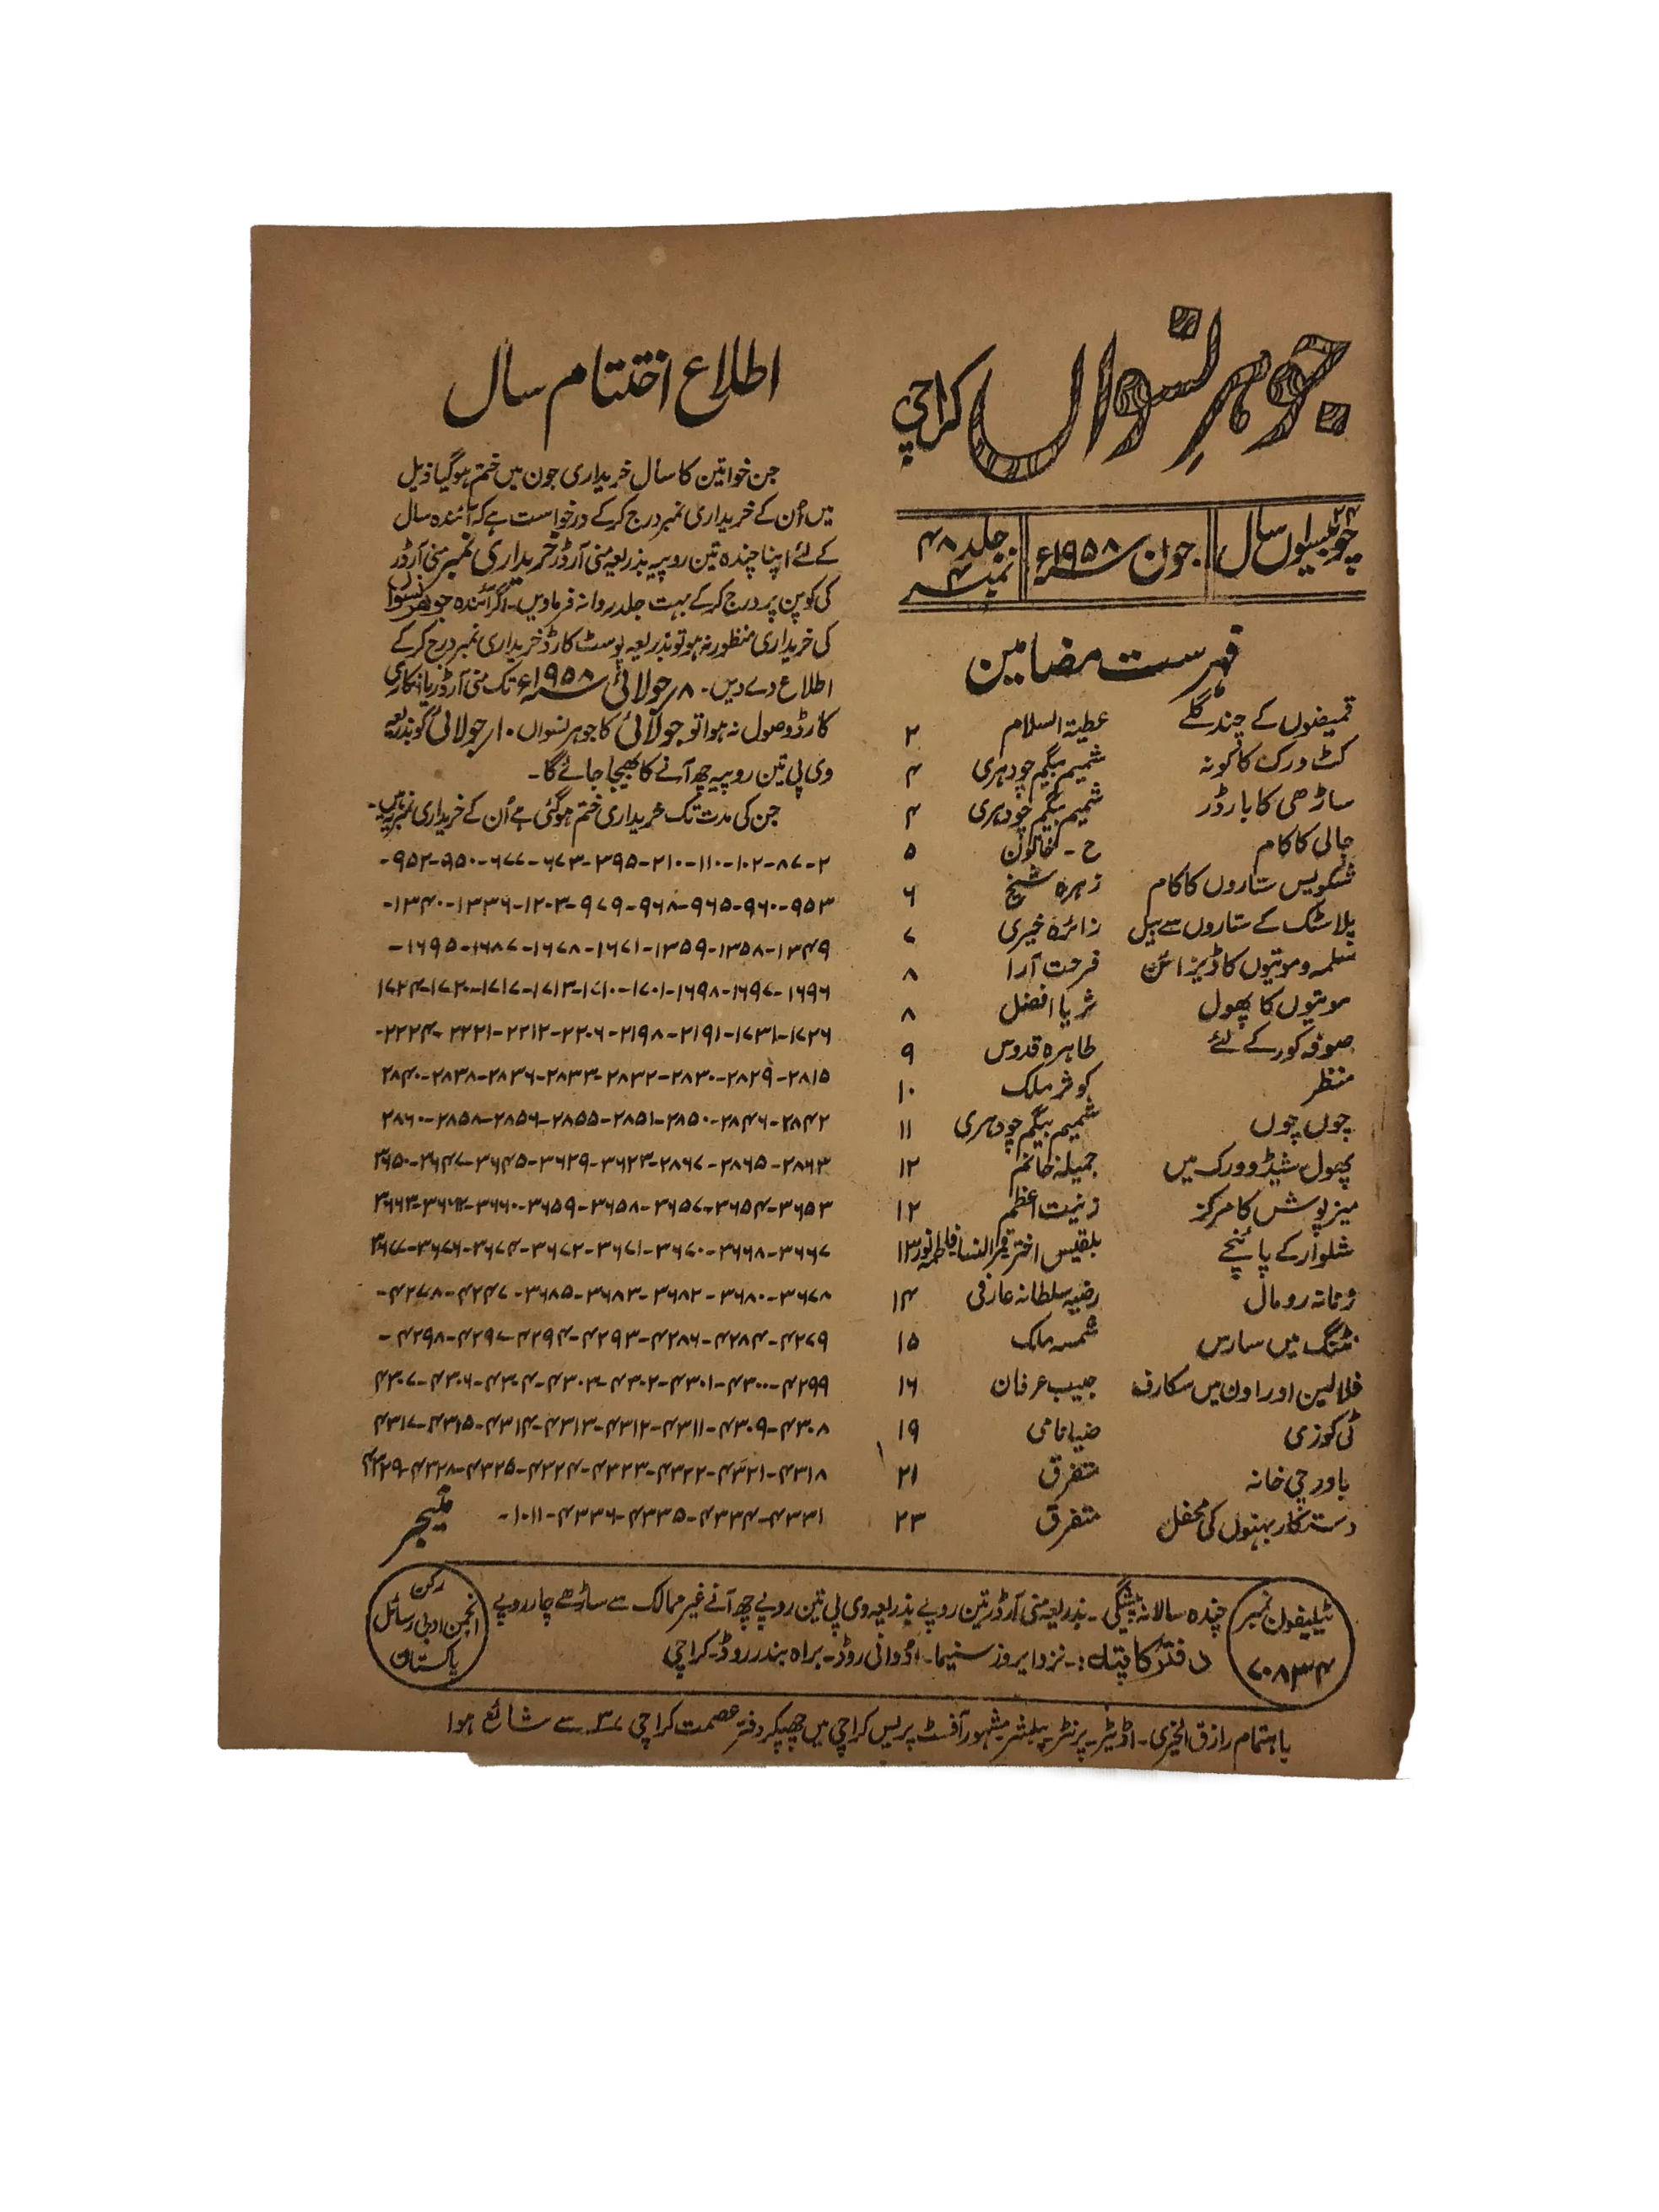 جوہرِ نسواں کراچی
۲۴
چوبیسواں سال
جون ۱۹۵۸ء
جلد ۴۸
نمبر
فہرست مضامین
قمیضوں کے چند گلے عطیۃ السلام ۲
کٹ ورک کا کونہ شمیم بیگم چودہری ۴
ساڑھی کا بارڈر شمیم بیگم چودہری ۴
جالی کا کام ح - خاتون ۵
شکویس ستاروں کا کام زہرہ شیخ ۶
پلاسٹک کے ستاروں سے بیل زائرہ خیری ۷
سلمہ و موتیوں کا ڈیزائن فرحت آرا ۸
موتیوں کا پھول ثریا افضل ۸
صوفہ کور کے لئے طاہرہ قدوس ۹
منظر کوثر ملک ۱۰
چوں چوں شمیم بیگم چودہری ۱۱
پھول شیڈو ورک میں جمیلہ خانم ۱۲
میز پوش کا مرکز زینت اعظم ۱۲
شلوار کے پائنچے بلقیس اختر قمرالنسا فاطمہ انور ۱۳
زنانہ رومال رضیہ سلطانہ عارفی ۱۴
نٹنگ میں سارس شمسہ ملک ۱۵
فلالین اور اون میں سکارف حبیب عرفان ۱۶
ٹی کوزی ضیا نامی ۱۹
باورچی خانہ متفرق ۲۱
دستکار بہنوں کی محفل متفرق ۲۳
اطلاع اختتام سال
جن خواتین کا سال خریداری جون میں ختم ہوگیا ذیل
میں اُن کے خریداری نمبر درج کرکے درخواست ہے کہ آئندہ سال
کے لئے اپنا چندہ تین روپیہ بذریعہ منی آرڈر خریداری نمبر منی آرڈر
کی کوپن پر درج کرکے بہت جلد روانہ فرمادیں۔ اگر آئندہ جوہر نسواں
کی خریداری منظور نہ ہو تو بذریعہ پوسٹ کارڈ خریداری نمبر درج کرکے
اطلاع دے دیں۔ ۸ر جولائی ۱۹۵۸ء تک منی آرڈر یا انکاری
کارڈ وصول نہ ہوا تو جولائی کا جوہر نسواں ۱۰ر جولائی کو بذریعہ
وی پی تین روپیہ چھ آنے کا بھیجا جائے گا۔
جن کی مدت تک خریداری ختم ہوگئی ہے اُن کے خریداری نمبر یہ ہیں۔
۲-۸۷-۱۰۲-۱۱۰-۲۱۰-۳۹۵-۶۷۳-۶۷۷-۹۵۰-۹۵۲-
۹۵۳-۹۶۰-۹۶۵-۹۶۸-۹۷۹-۱۲۰۳-۱۳۳۶-۱۳۴۰-
۱۳۴۹-۱۳۵۸-۱۳۵۹-۱۶۷۱-۱۶۷۸-۱۶۸۷-۱۶۹۵-
۱۶۹۶-۱۶۹۷-۱۶۹۸-۱۷۰۱-۱۷۱۰-۱۷۱۳-۱۷۱۷-۱۷۲۰-۱۷۲۴
۱۷۲۶-۱۷۳۱-۲۱۹۱-۲۱۹۸-۲۲۰۶-۲۲۱۲-۲۲۲۱-۲۲۲۴-
۲۸۱۵-۲۸۲۹-۲۸۳۰-۲۸۳۲-۲۸۳۳-۲۸۳۶-۲۸۳۸-۲۸۴۰
۲۸۴۲-۲۸۴۶-۲۸۵۰-۲۸۵۱-۲۸۵۵-۲۸۵۶-۲۸۵۸-۲۸۶۰
۲۸۶۳-۲۸۶۵-۲۸۶۷-۳۶۲۳-۳۶۲۹-۳۶۴۵-۳۶۴۷-۳۶۵۰
۳۶۵۳-۳۶۵۴-۳۶۵۷-۳۶۵۸-۳۶۵۹-۳۶۶۰-۳۶۶۲-۳۶۶۳
۳۶۶۷-۳۶۶۸-۳۶۷۰-۳۶۷۱-۳۶۷۲-۳۶۷۴-۳۶۷۶-۳۶۷۷
۳۶۷۸-۳۶۸۰-۳۶۸۲-۳۶۸۳-۳۶۸۵-۴۲۴۷-۴۲۷۸-
۴۲۷۹-۴۲۸۴-۴۲۸۶-۴۲۹۳-۴۲۹۴-۴۲۹۷-۴۲۹۸-
۴۲۹۹-۴۳۰۰-۴۳۰۱-۴۳۰۲-۴۳۰۳-۴۳۰۴-۴۳۰۶-۴۳۰۷
۴۳۰۸-۴۳۰۹-۴۳۱۱-۴۳۱۲-۴۳۱۳-۴۳۱۴-۴۳۱۵-۴۳۱۷
۴۳۱۸-۴۳۲۱-۴۳۲۲-۴۳۲۳-۴۳۲۴-۴۳۲۵-۴۳۲۸-۴۳۲۹
۴۳۳۱-۴۳۳۴-۴۳۳۵-۴۳۳۶-۱۰۱۱-
منیجر
ٹیلیفون نمبر
۷۰۸۳۴
چندہ سالانہ پیشگی۔ بذریعہ منی آرڈر تین روپے بذریعہ وی پی تین روپے چھ آنے غیر ممالک سے ساڑھے چار روپے
دفتر کا پتہ:۔ نزد ایروز سنیما۔ اڈوانی روڈ۔ براہ بندر روڈ۔ کراچی
رکن
انجمن ادبی رسائل
پاکستان
باہتمام رازق الخیری۔ اڈیٹر۔ پرنٹر پبلشر مشہور آفسٹ پریس کراچی میں چھپکر دفتر عصمت کراچی ۳۷ سے شائع ہوا